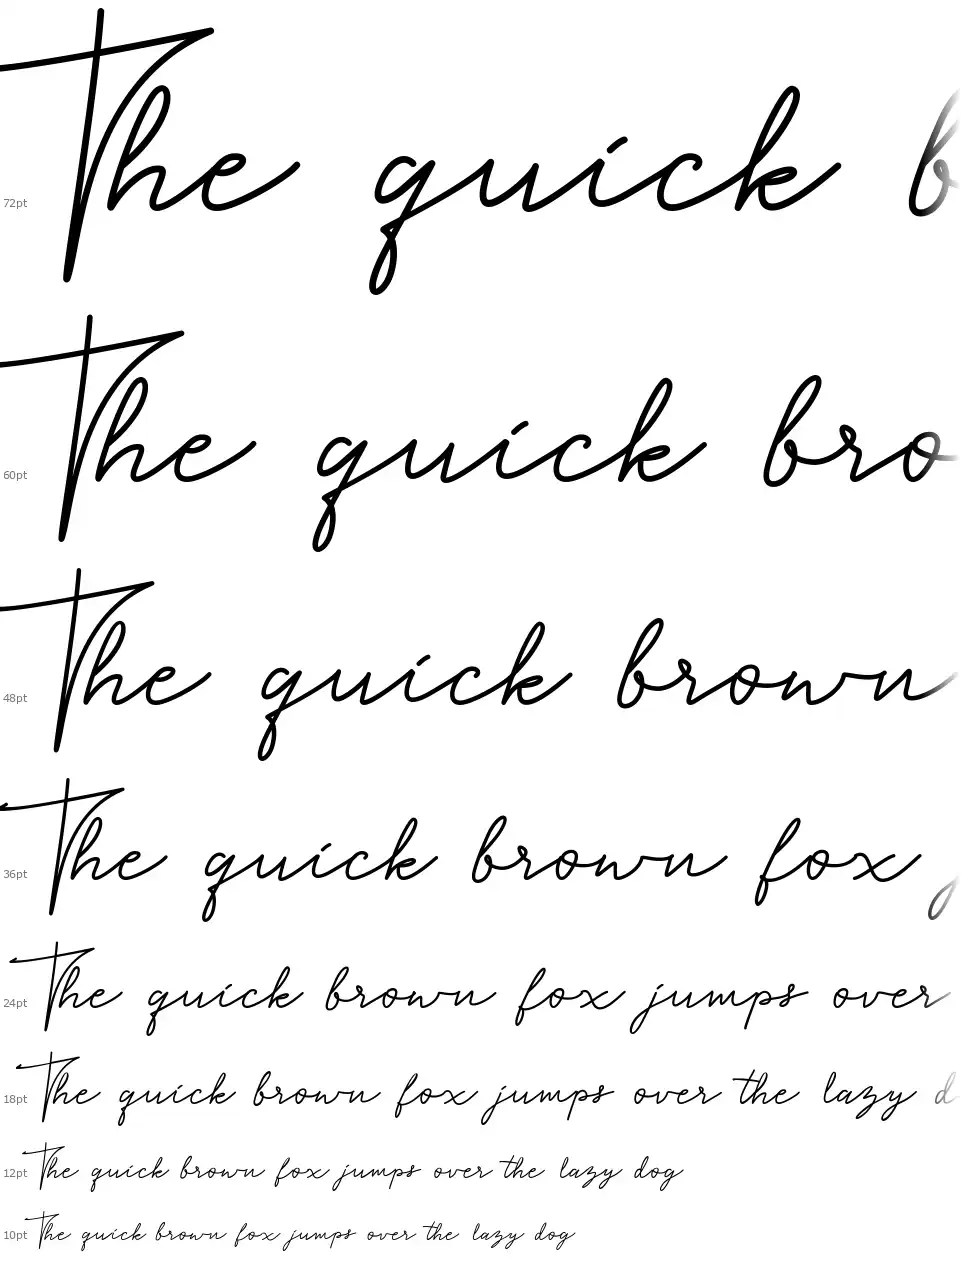 72pt The quick b
60pt The quick bro
48pt The quick brown
36pt The quick brown fox
24pt The quick brown fox jumps over
18pt The quick brown fox jumps over the lazy d
12pt The quick brown fox jumps over the lazy dog
10pt The quick brown fox jumps over the lazy dog